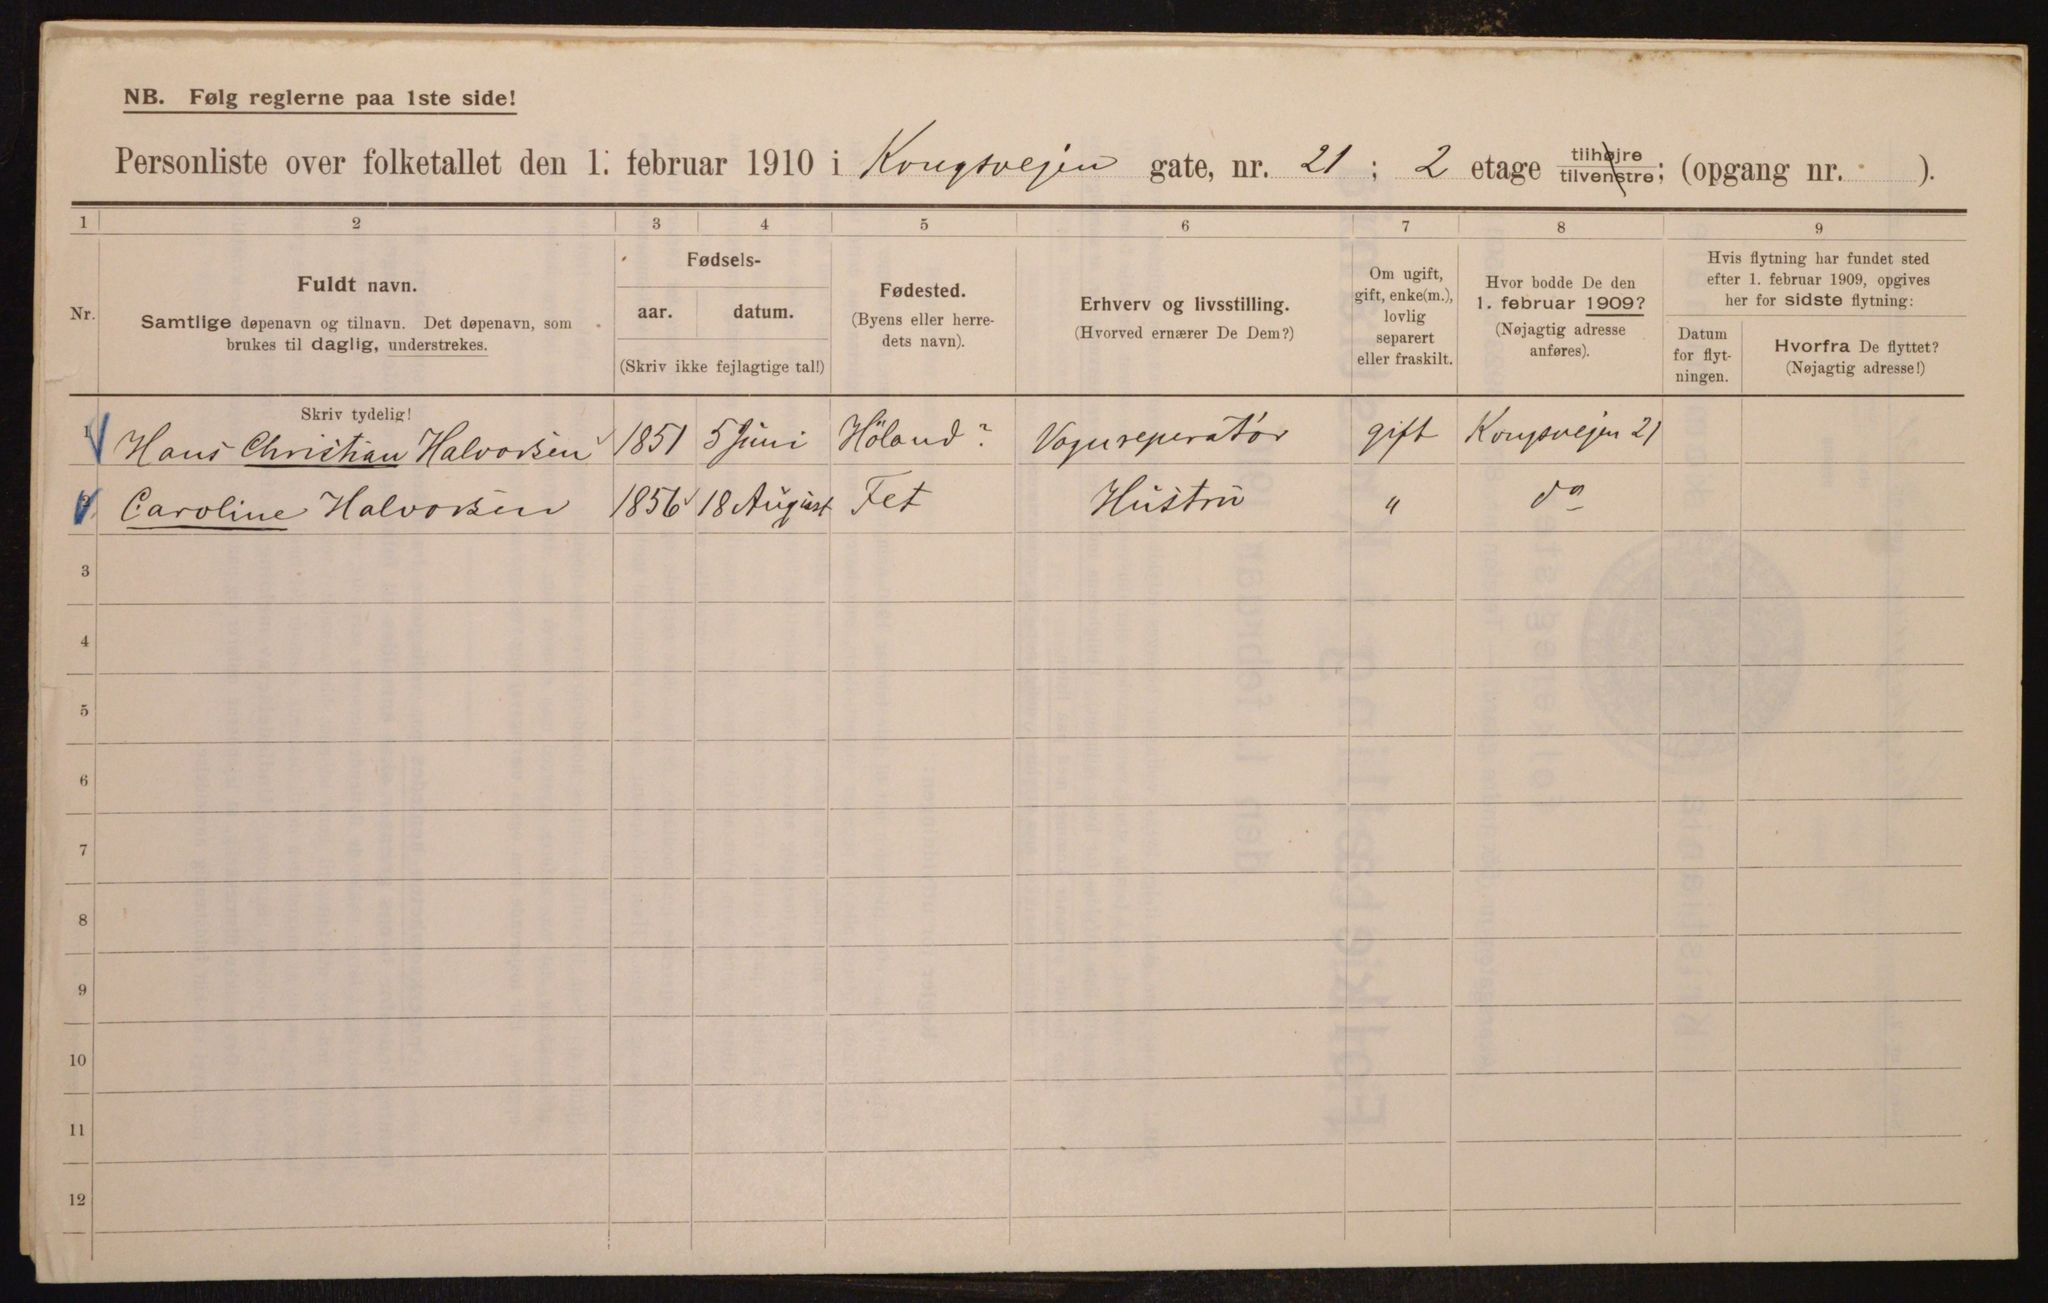 NB. Følg reglerne paa 1ste side!
Personliste over folketallet den 1. februar 1910 i Kongsvejen gate, nr. 21 ; 2 etage tilhøjre tilvenstre; (opgang nr. ).
1 2 3 4 5 6 7 8 9
Nr.
Fuldt navn.
Samtlige døpenavn og tilnavn. Det døpenavn, som
brukes til daglig, understrekes.
Fødsels-
aar. datum.
(Skriv ikke fejlagtige tal!)
Fødested.
(Byens eller herre-
dets navn).
Erhverv og livsstilling.
(Hvorved ernærer De Dem?)
Om ugift,
gift, enke(m.),
lovlig
separert
eller fraskilt.
Hvor bodde De den
1. februar 1909?
(Nøjagtig adresse
anføres).
Hvis flytning har fundet sted
efter 1. februar 1909, opgives
her for sidste flytning:
Datum
for flyt-
ningen.
Hvorfra De flyttet?
(Nøjagtig adresse!)
Skriv tydelig!
1 Hans Christian Halvorsen 1851 5 Juni Höland? Vognreperatör gift Kongsvejen 21
Caroline Halvorsen 1856 18 August Fet Hustru " do
3
4
5
6
7
8
9
10
11
12